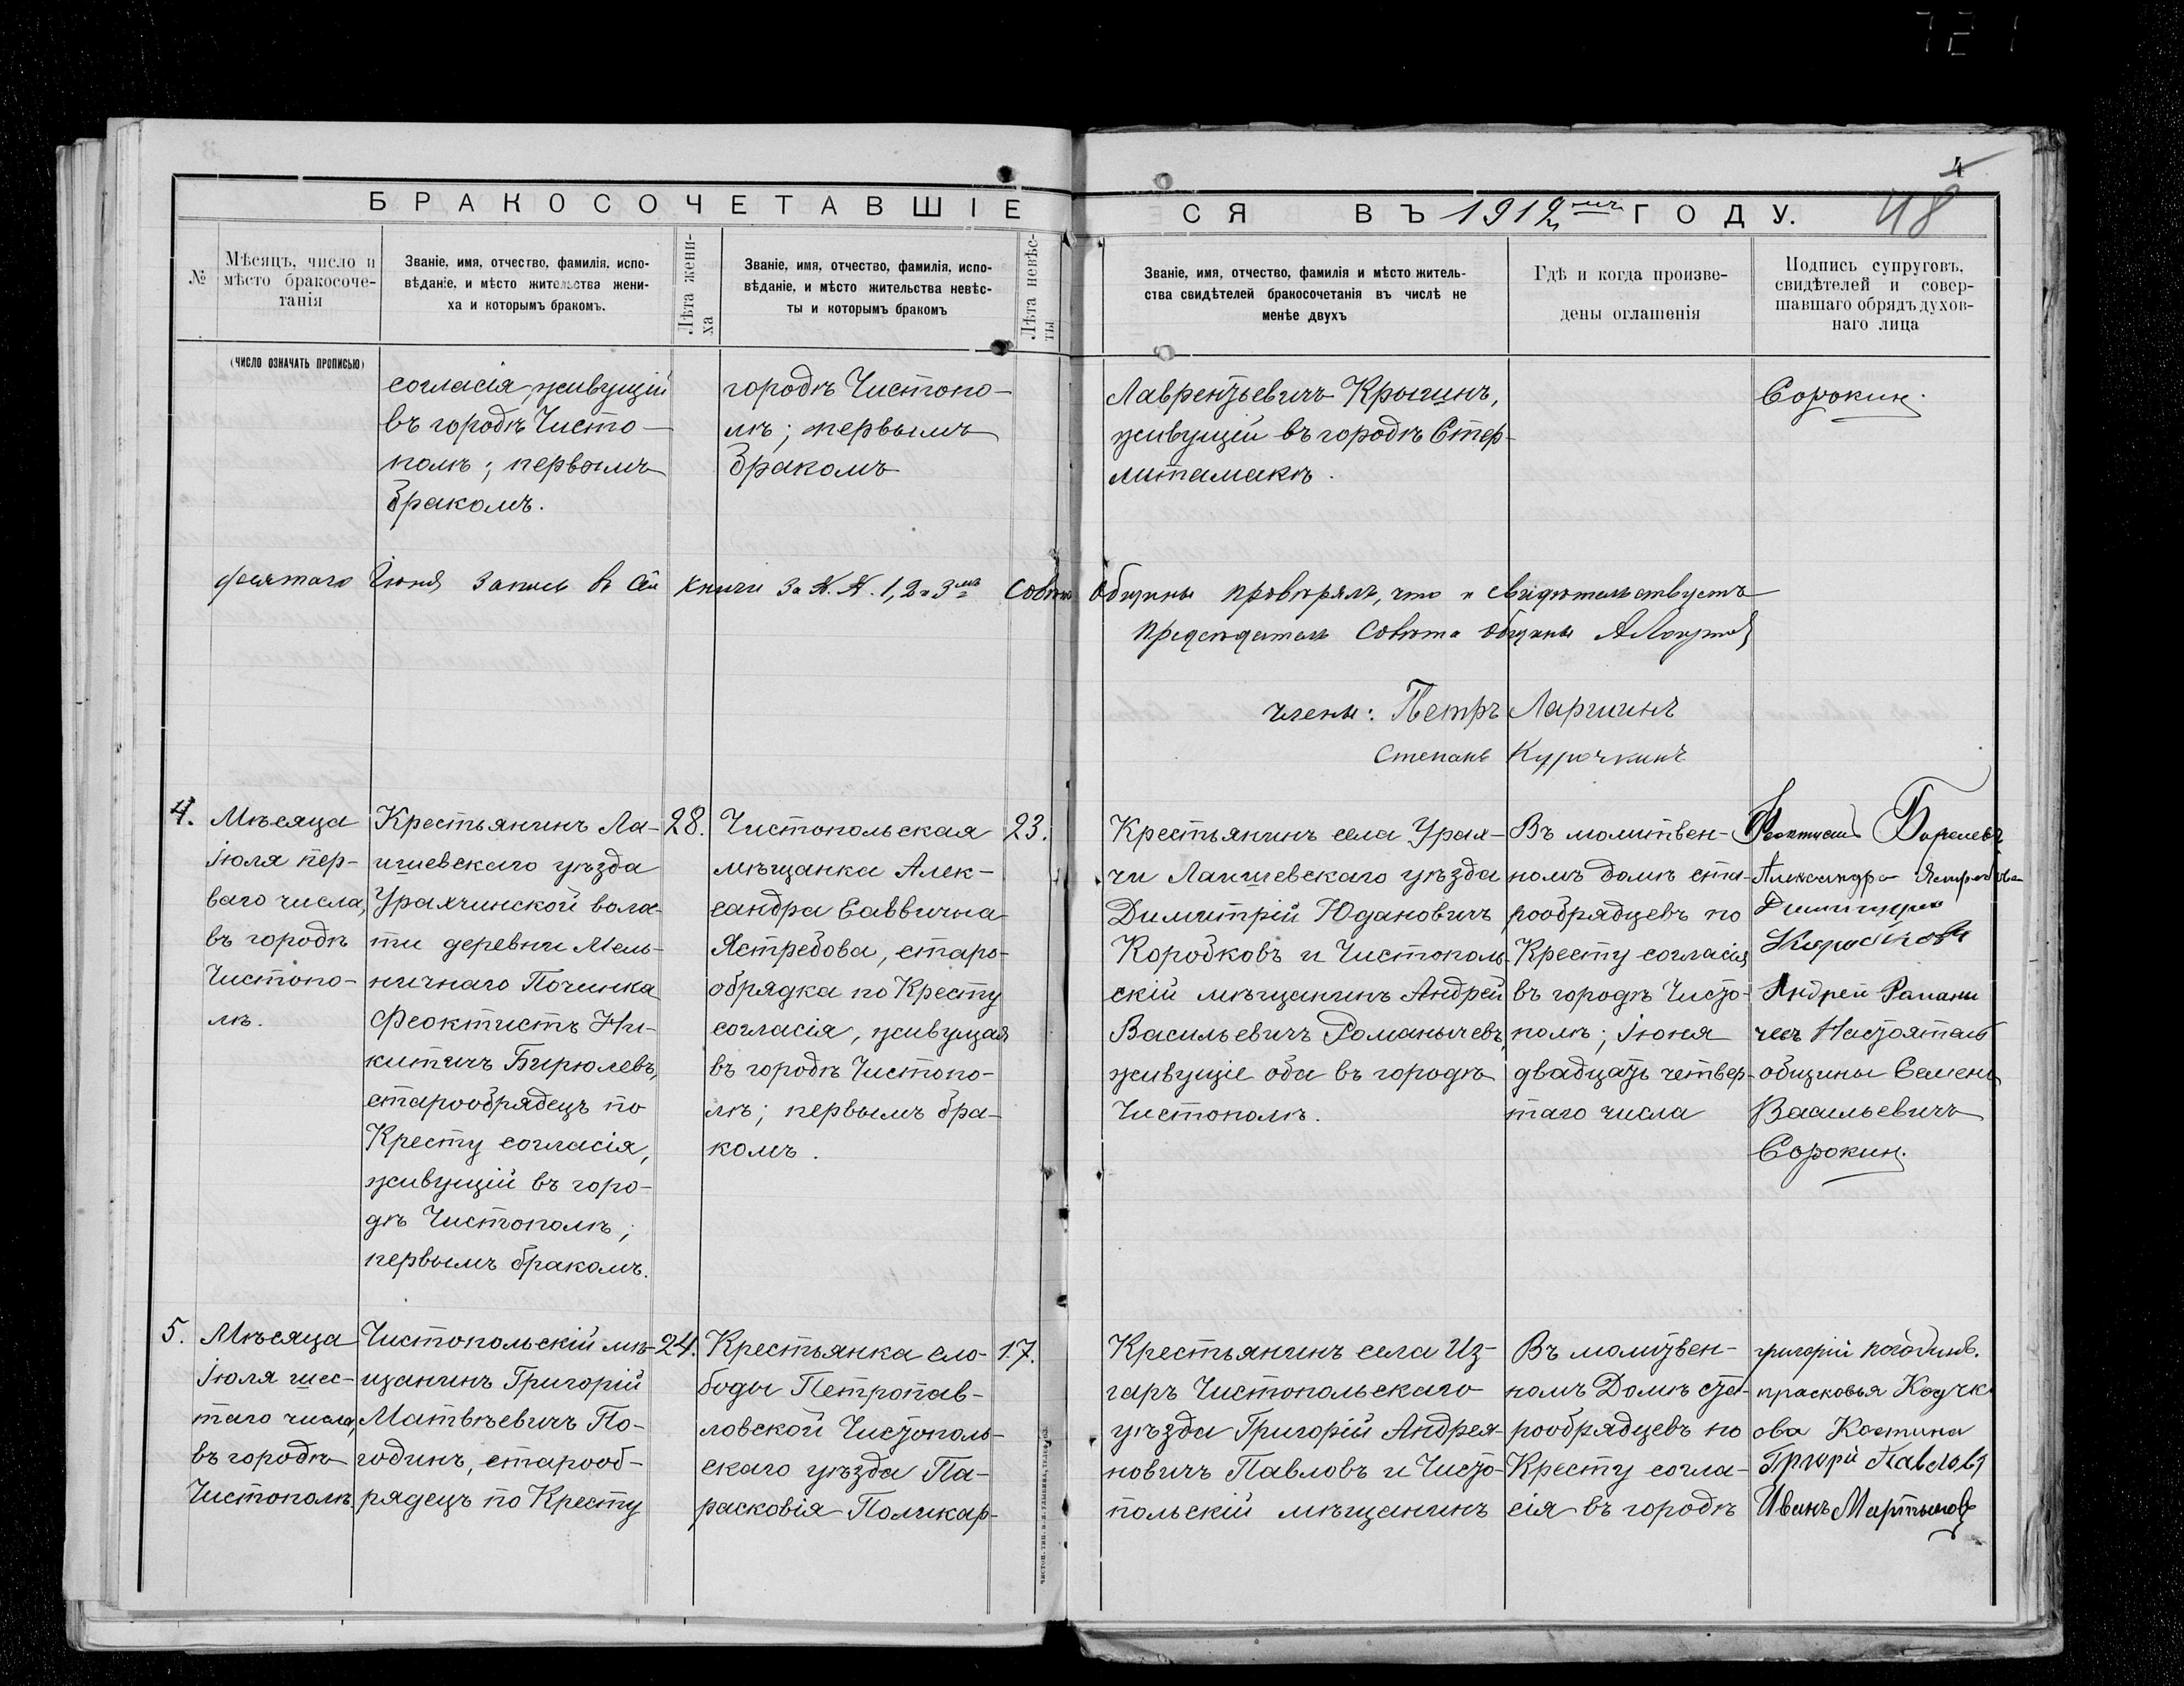 4
48
БРАКОСОЧЕТАВШІЕ
СЯ ВЪ 1912 мъ ГОДУ.
№
Мѣсяцъ, число и
мѣсто бракосоче-
танія
Званіе, имя, отчество, фамилія, испо-
вѣданіе, и мѣсто жительства жени-
ха и которымъ бракомъ.
Лѣта жени-
ха
Званіе, имя, отчество, фамилія, испо-
вѣданіе, и мѣсто жительства невѣс-
ты и которымъ бракомъ
Лѣта невѣс-
ты
Званіе, имя, отчество, фамилія и мѣсто житель-
ства свидѣтелей бракосочетанія въ числѣ не
менѣе двухъ
Гдѣ и когда произве-
дены оглашенія
Подпись супруговъ,
свидѣтелей и совер-
шавшаго обрядъ духов-
наго лица
(ЧИСЛО ОЗНАЧАТЬ ПРОПИСЬЮ)
согласія, живущій
въ городѣ Чисто-
полѣ; первымъ
бракомъ.
городѣ Чистопо-
лѣ; первымъ
бракомъ
Лаврентьевичъ Крыгинъ,
живущій въ городѣ Стер-
литамакѣ.
Сорокин.
Июня запись в сей книги за №.№. 1, 2 и 3 мъ Совѣтъ Общины провѣрялъ, что и свидѣтельствуетъ
Предсѣдатель Совѣта общины
члены: Петръ Ларинъ
Степанъ Курочкинъ
4.
Мѣсяца
Іюля пер-
ваго числа,
въ городѣ
Чистопо-
лѣ.
Крестьянинъ Ла-
ишевскаго уѣзда
Урахчинской волос-
ти деревни Мель-
ничнаго Починка
Феоктистъ Ни-
китичъ Бирюлевъ,
старообрядецъ по
Кресту согласія,
живущій въ горо-
дѣ Чистополѣ;
первымъ бракомъ.
28.
Чистопольская
мѣщанка Алек-
сандра Саввична
Ястребова, старо-
обрядка по Кресту
согласія, живущая
въ городѣ Чистопо-
лѣ; первымъ бра-
комъ.
23.
Крестьянинъ села Урах-
чи Лаишевскаго уѣзда
Димитрій Юдановичъ
Коробковъ и Чистополь-
скій мѣщанинъ Андрей
Васильевичъ Романычевъ,
живущіе оба въ городѣ
Чистополѣ.
Въ молитвен-
номъ домѣ ста-
рообрядцевъ по
Кресту согласія,
въ городѣ Чисто-
полѣ; Іюня
двадцать четвер-
таго числа
Феоктистъ
Александра
Коробковъ
Андрей Раманы
чевъ Настоятель
общины Семенъ
Васильевичъ
Сорокин.
5.
Мѣсяца
Іюля шес-
таго числа,
въ городѣ
Чистополѣ
Чистопольскій мѣ-
щанинъ Григорій
Матвѣевичъ По-
годинъ, старооб-
рядецъ по Кресту
24.
Крестьянка сло-
боды Петропав-
ловской Чистополь-
скаго уѣзда Па-
расковія Поликар-
17.
Крестьянинъ села Из-
гаръ Чистопольскаго
уѣзда Григорій Андрея-
новичъ Павловъ и Чисто-
польскій мѣщанинъ
Въ молитвен-
номъ Домѣ ста-
рообрядцевъ по
Кресту согла-
сія въ городѣ
григорій погодинъ.
прасковья
ова Костина
Павловъ
Иванъ Мартыновъ